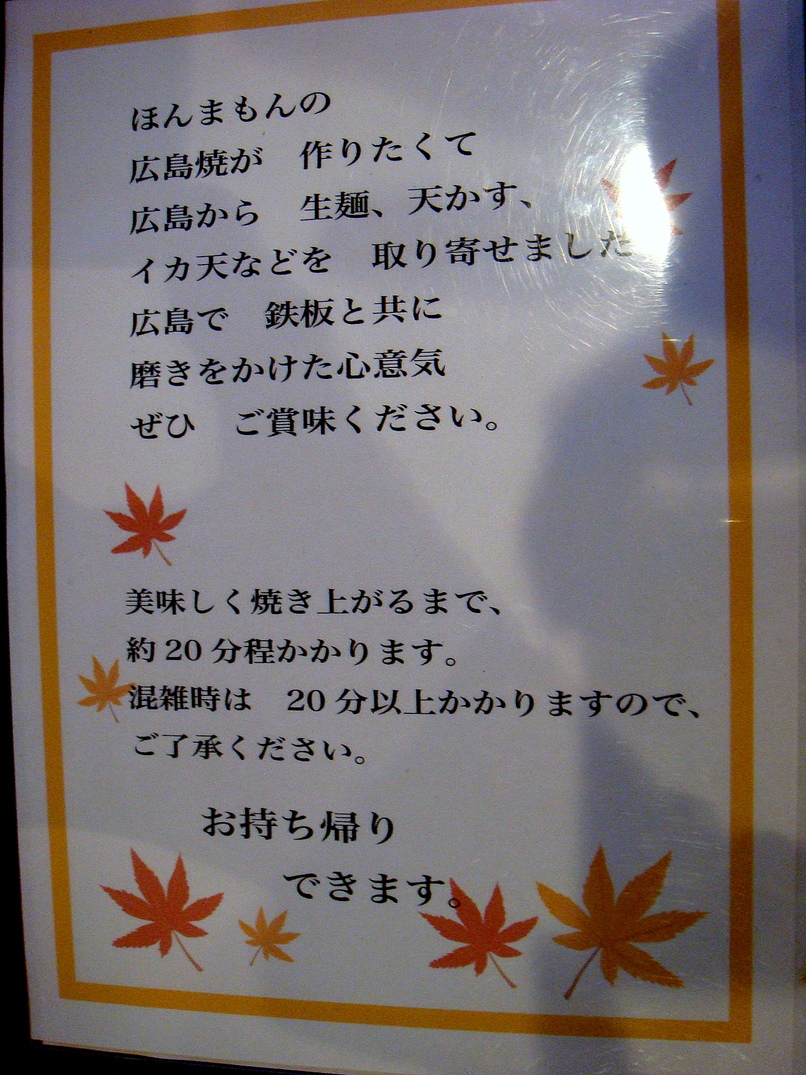 ほんまもんの
広島焼が　作りたくて
広島から　生麺、天かす、
イカ天などを　取り寄せました
広島で　鉄板と共に
磨きをかけた心意気
ぜひ　ご賞味ください。
美味しく焼き上がるまで、
約20分程かかります。
混雑時は　20分以上かかりますので、
ご了承ください。
お持ち帰り
できます。